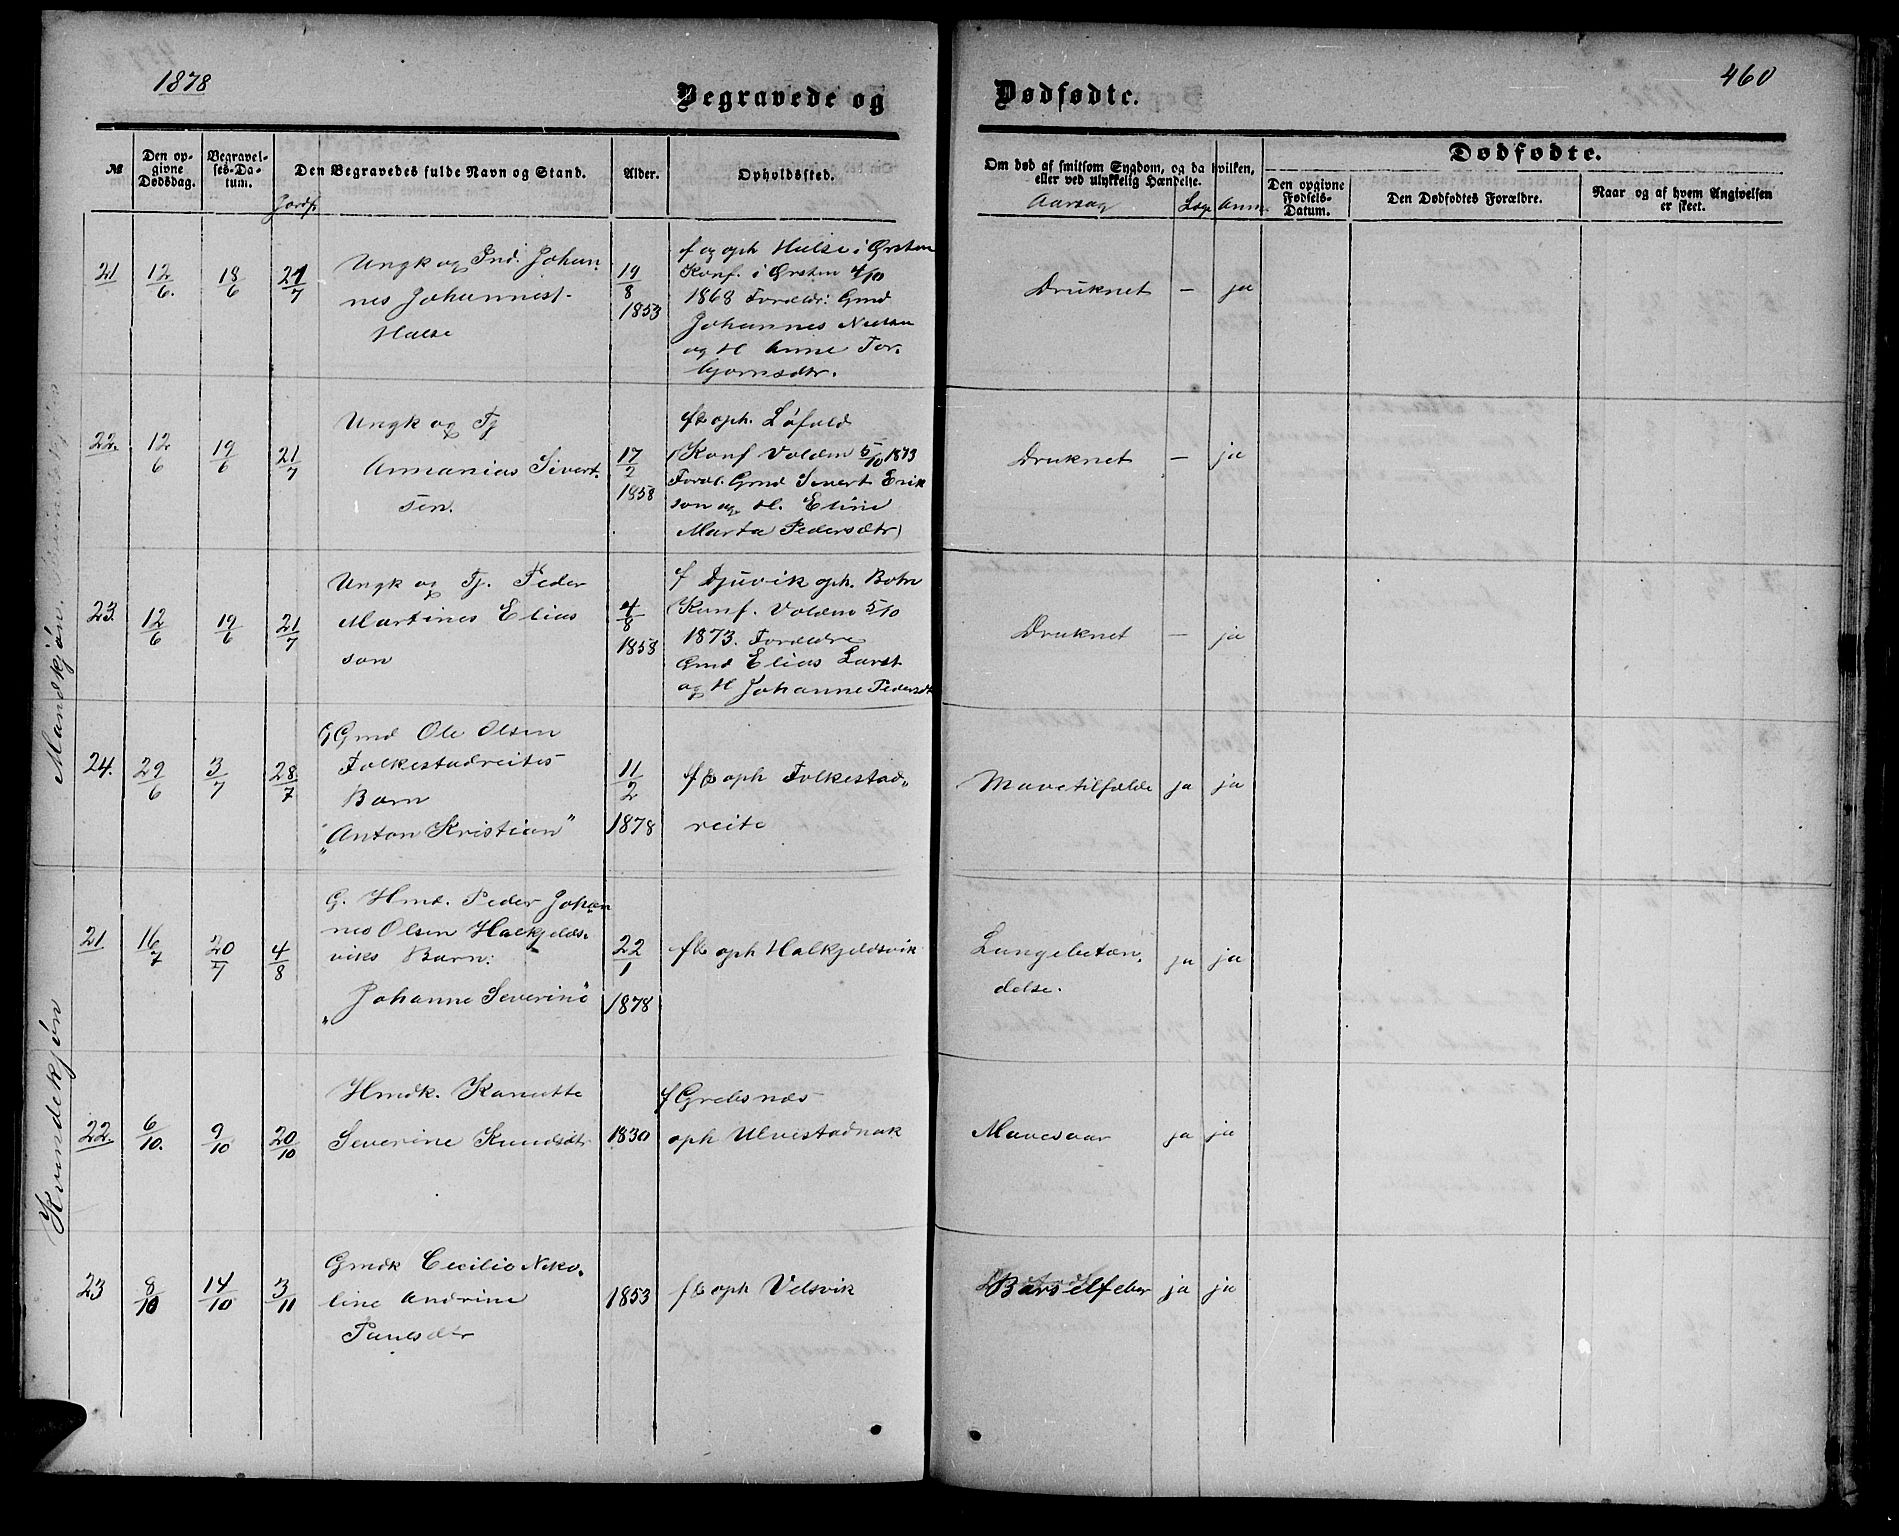 1878
Begravede og
Dødfødte.
460
№
Den opgivne Dødsdag.
Begravelses-Datum.
Jordf
Den Begravedes fulde Navn og Stand.
Alder.
Opholdssted.
Om død af smitsom Sygdom, og da hvilken,
eller ved ulykkelig Hændelse.
Aarsag
Læge
Anm.
Dødfødte.
Den opgivne Fødsels-Datum.
Den Dødfødtes Forældre.
Naar og af hvem Angivelsen er skeet.
Mandkjøn.
21
12/6.
18/6
21/7
Ungk og Ind. Johan-
nes Johannest.
Halse
19/8
1853
f og oph Halse i Ørsten
Konf. i Ørsten 4/10
1868 Forældr: Gmd
Johannes Nielsen
og H Anne Tor-
bjørnsdtr.
Druknet
—
ja
22.
12/6
19/6
21/7
Ungk og Tj
Annanias Sivert-
sen.
17/2
1858
f & oph. Løfald
(Konf Volden 5/10 1873
Foræl. Gmd Sivert Erik
son og H. Eline
Marta Pedersdtr)
Druknet
—
ja
23.
12/6
19/6
21/7
Ungk og Tj. Peder
Martines Elias
son
4/8
1858
f Djuvik oph. Botn
(Konf. Volden 5/10
1873. Forældre
Gmd Elias Larst
og H Johanne Pedersdt
Druknet
—
ja
24.
29/6
3/7
28/7
G Gmd Ole Olsen
Folkestadreites
Barn
"Anton Kristian"
11/2
1878
f & oph Folkestad-
reite
Mavetilfælde
ja
ja
Kvindekjøn
21
16/7
20/7
4/8
G. Hmd. Peder Johan
nes Olsen Halkjelds-
viks Barn:
"Johanne Severine"
22/1
1878
f & oph Halkjeldsvik
Lungebetæn-
delse.
ja
ja
22.
6/10.
9/10
20/10
Hmdk. Kanutte
Severine Knudsdtr
1830
f Grebsnæs
oph Ulvestadnak
Mavesaar
ja
ja
23
8/10
14/10
3/11
Gmdk Cecilie Niko-
line Andrine
Paulsdtr
1853
f & oph Velsvik
Barselfeber
ja
ja